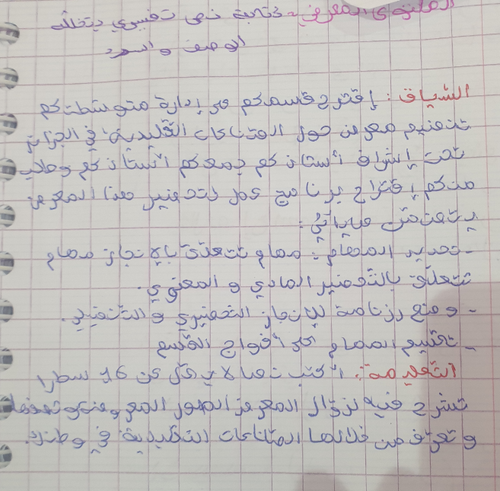 المستوى المعرفي: كتابة نص تفسيري يتخلله
الوصف والسرد
السياق: إقترح قسمكم على إدارة متوسطتكم
تنظيم معرض حول الصناعات التقليدية في الجزائر
تحت إشراف أستاذكم جمعكم أستاذكم وطلب
منكم إقتراح برنامج عمل لتحضير هذا المعرض
يتضمن مايأتي:
- تحديد المهام: مهام تتعلق بالإنجاز مهام
تتعلق بالتحضير المادي و المعنوي.
- وضع رزنامة للإنجاز التحضيري و التنفيذي.
- تقسيم المهام على أفواج القسم
التعليمة: أكتب نصا لا يقل عن 16 سطرا
تشرح فيه لزوار المعرض الصور المعروضة
و تعرف من خلالها الصناعات التقليدية في وطنك.